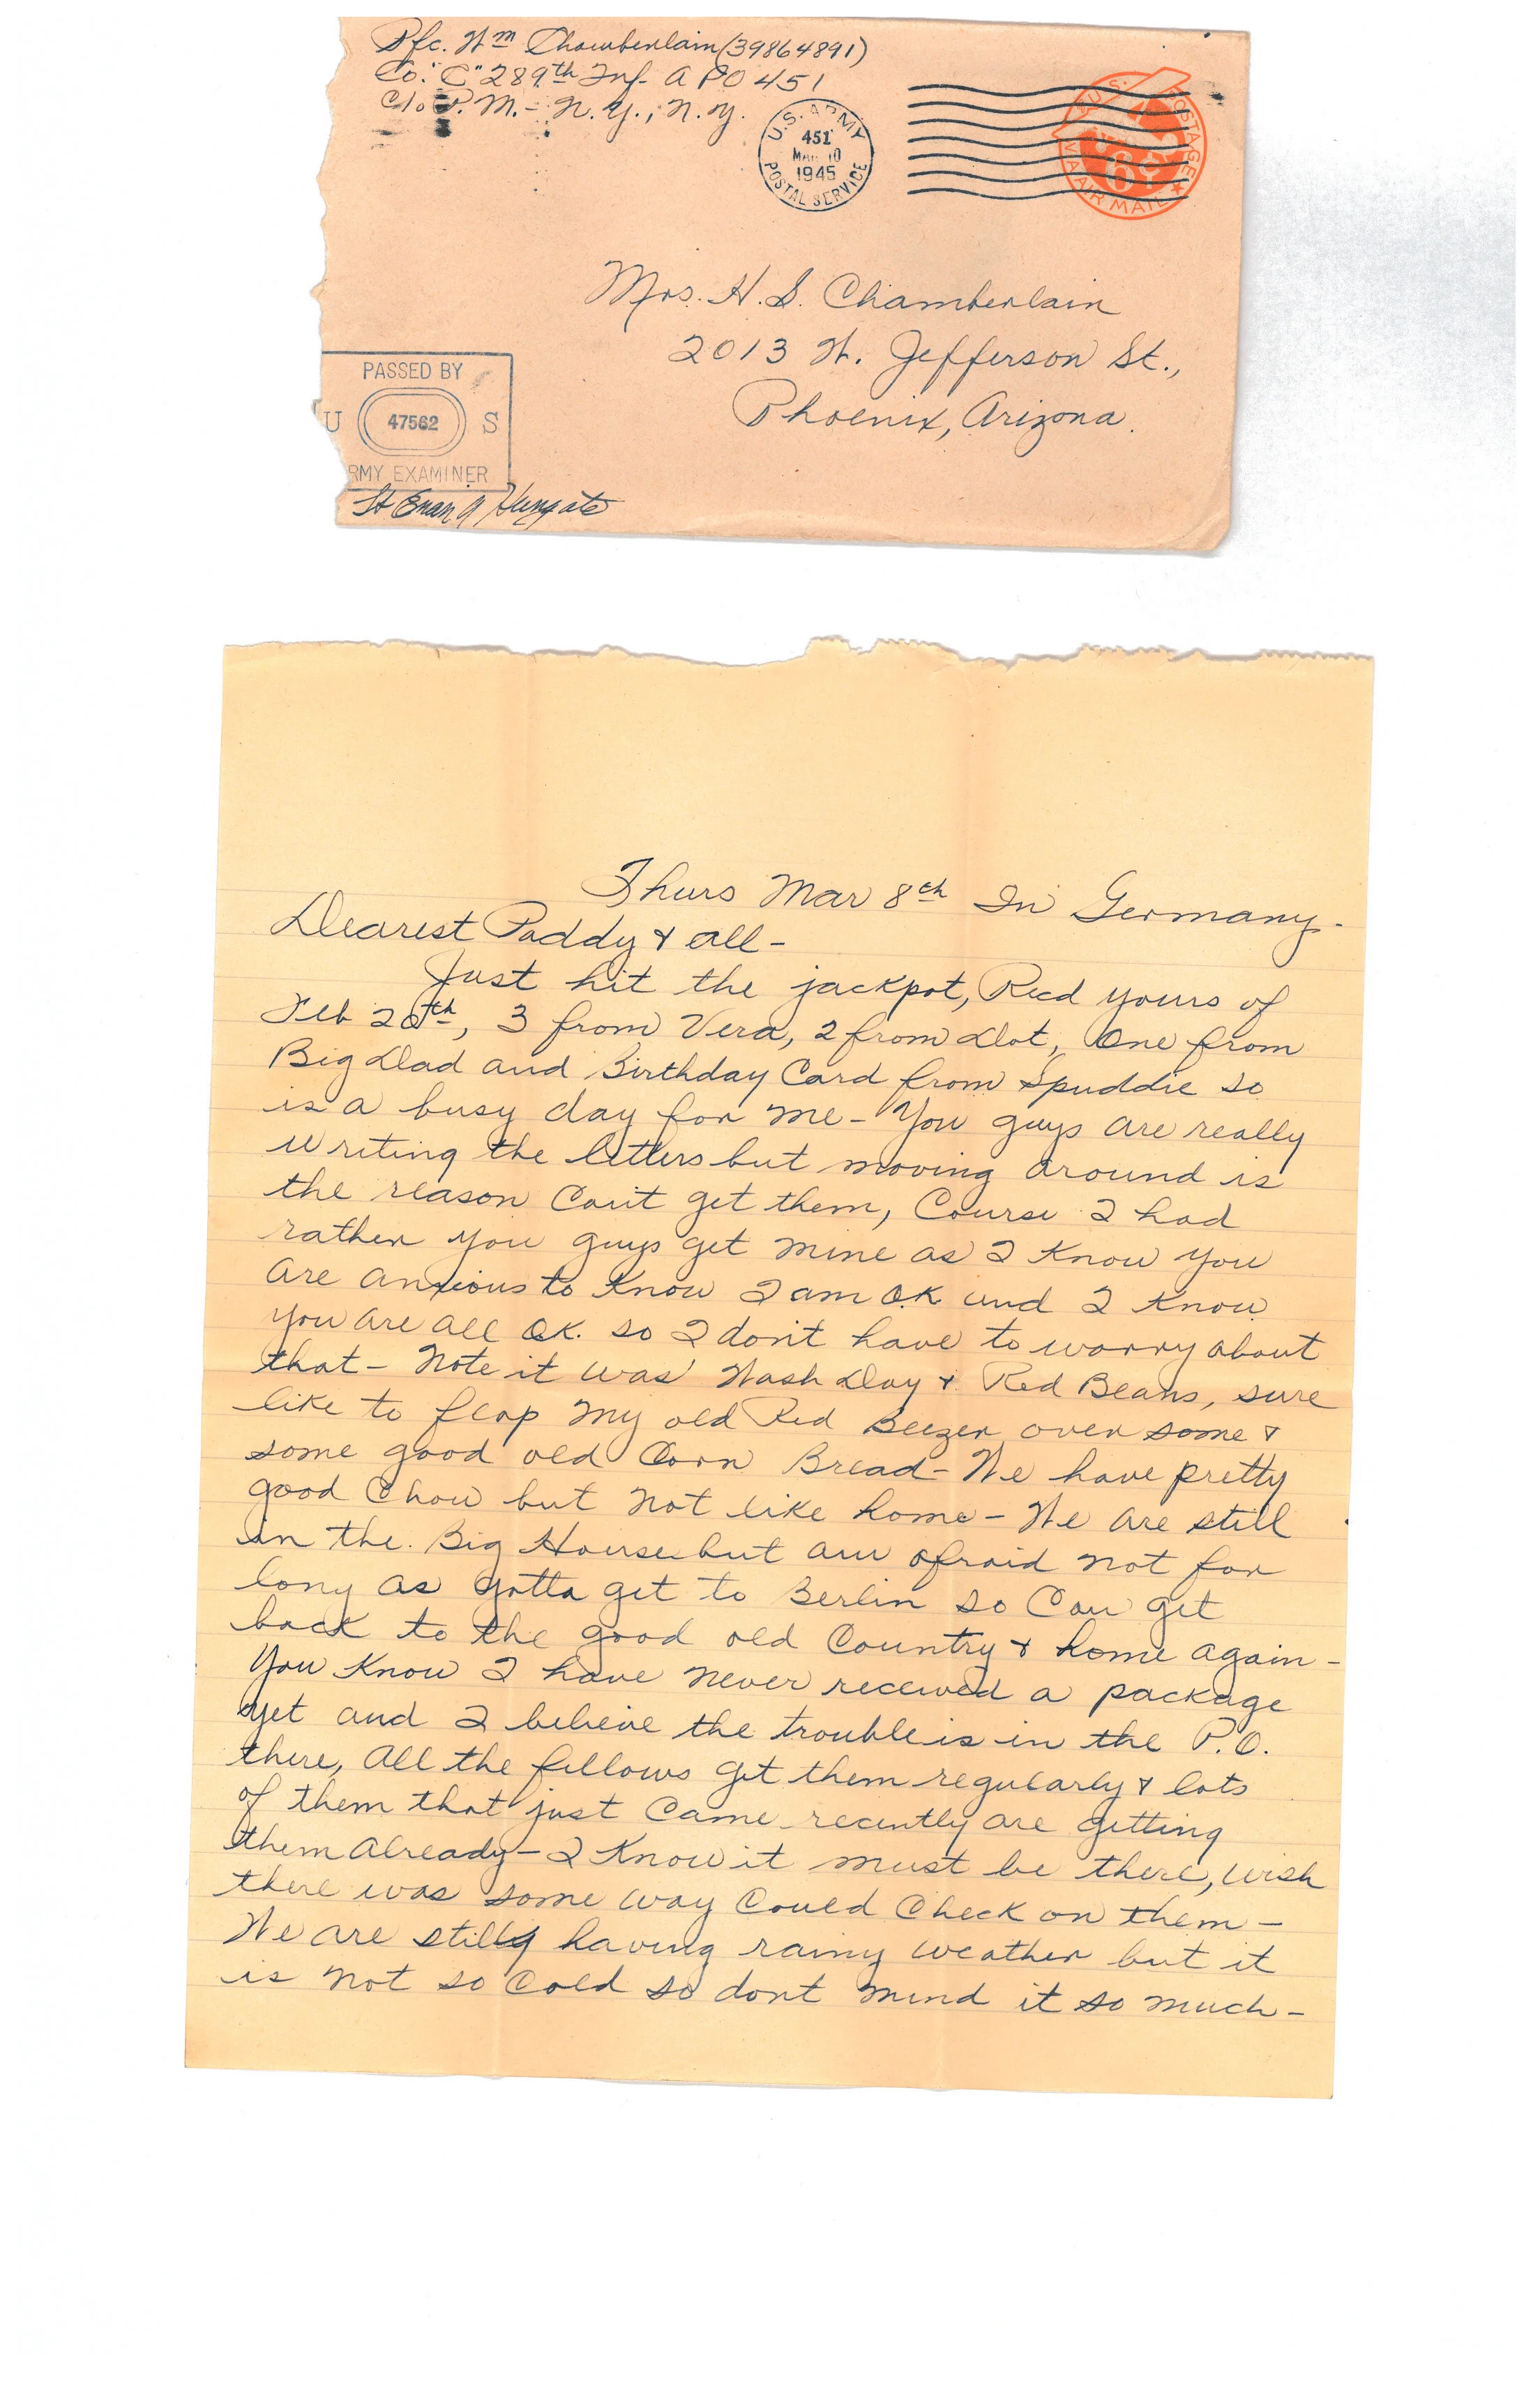 Pfc. Wm Chamberlain (39864891)
Co. "C" 289th Inf. APO 451
c/o P.M. - N.Y., N.Y.
U.S. ARMY
451
MAR 10
1945
POSTAL SERVICE
U.S. POSTAGE
6¢
VIA AIR MAIL
Mrs. H. S. Chamberlain
2013 W. Jefferson St.,
Phoenix, Arizona.
PASSED BY
U 47562 S
RMY EXAMINER
Hungate
Thurs Mar 8th In Germany-
Dearest Paddy & all-
Just hit the jackpot, Recd yours of
Feb 20th, 3 from Vera, 2 from Dot, One from
Big Dad and Birthday Card from Spuddie so
is a busy day for me - You guys are really
writing the letters but moving around is
the reason Can't get them, Course I had
rather you guys get mine as I Know you
are anxious to Know I am O.K and I Know
you are all OK. so I don't have to worry about
that - Note it was Wash Day & Red Beans, sure
like to flap my old Red Beezer over some &
some good old Corn Bread - We have pretty
good Chow but not like home - We are still
in the Big House but am afraid not for
long as gotta get to Berlin so Can get
back to the good old Country & home again -
You Know I have never received a package
yet and I believe the trouble is in the P.O.
there, All the fellows get them regularly & lots
of them that just Came recently are getting
them Already - I Know it must be there, wish
there was some way Could Check on them -
We are still having rainy weather but it
is not so Cold so dont mind it so much -